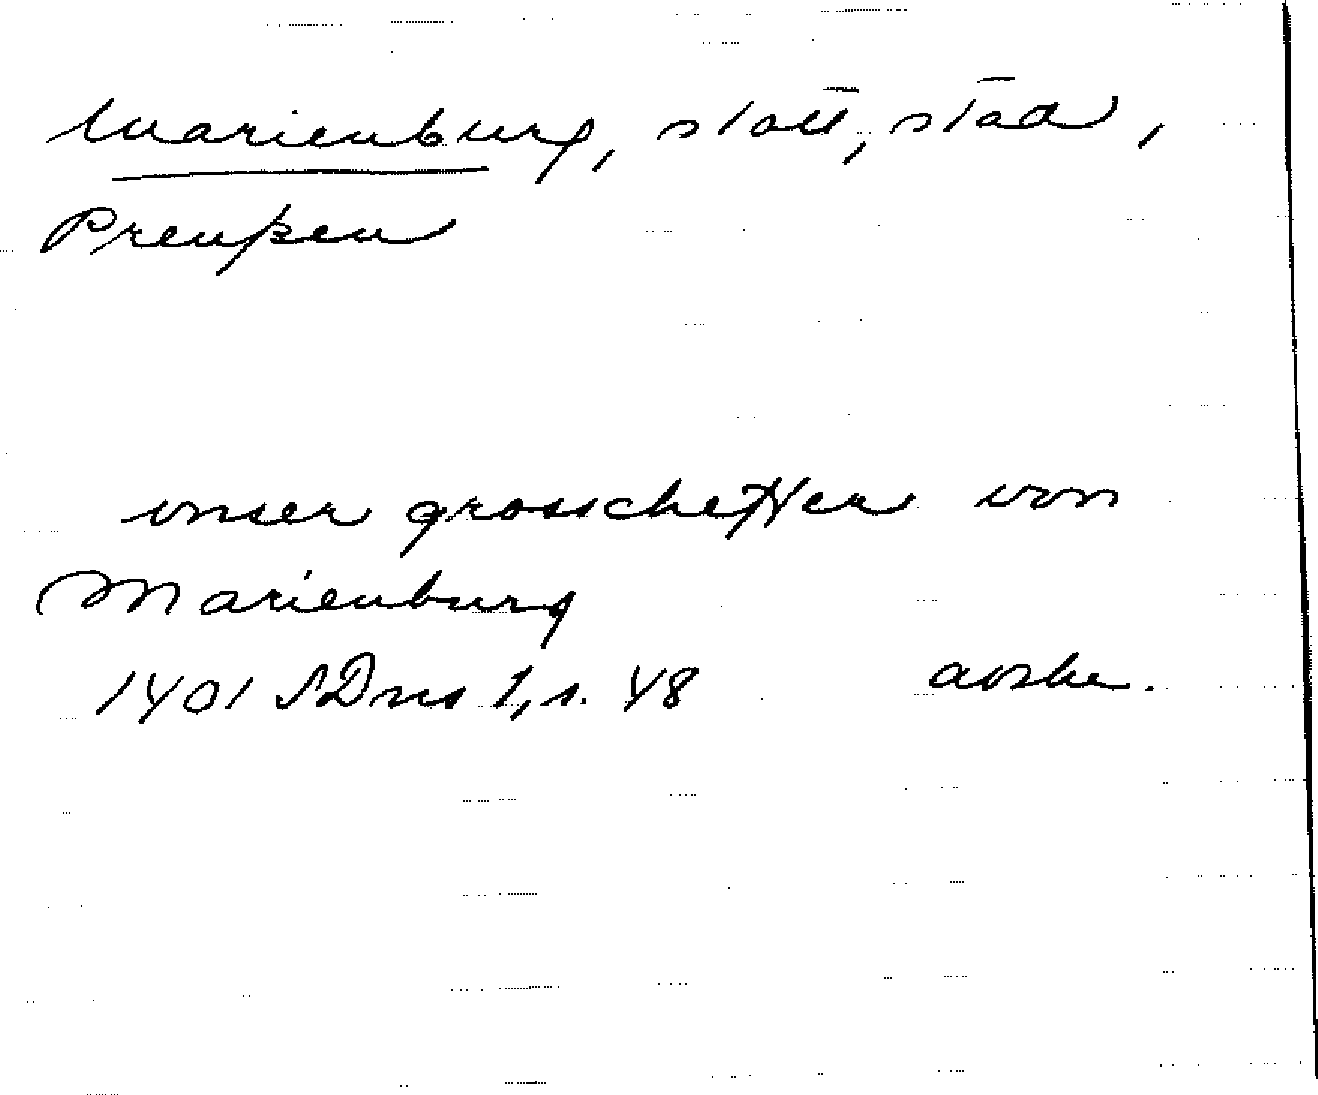 Marienburg, statt, stad,
Preußen
vnser grosscheffer von
Marienburg
1401 SDns 1, s. 48 avske.